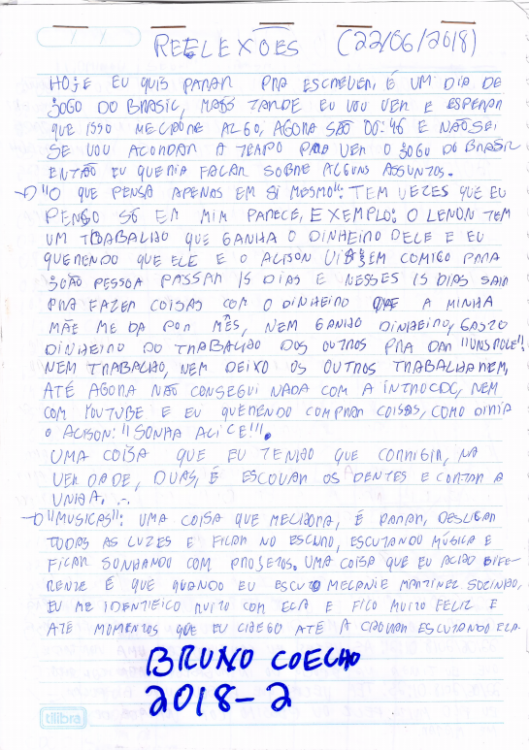 REFLEXÕES (22/06/2018)
HOJE EU QUIS PARAR PRA ESCREVER, É UM DIA DE
JOGO DO BRASIL, MAIS TARDE EU VOU VER E ESPERAR
QUE ISSO MELHORE ALGO, AGORA SÃO 00:46 E NÃO SEI
SE VOU ACORDAR A TEMPO PRA VER O JOGO DO BRASIL
ENTÃO EU QUERIA FALAR SOBRE ALGUNS ASSUNTOS.
"O QUE PENSA APENAS EM SI MESMO": TEM VEZES QUE EU
PENSO SÓ EM MIM PARECE, EXEMPLO: O LENON TEM
UM TRABALHO QUE GANHA O DINHEIRO DELE E EU
QUERENDO QUE ELE E O ALISON VIESSEM COMIGO PARA
JOÃO PESSOA PASSAR 15 DIAS E NESSES 15 DIAS SAIR
PRA FAZER COISAS COM O DINHEIRO QUE A MINHA
MÃE ME DA POR MÊS, NEM GANHO DINHEIRO, GASTO
DINHEIRO DO TRABALHO DOS OUTROS PRA DAR "UNS ROLE".
NEM TRABALHO, NEM DEIXO OS OUTROS TRABALHAREM,
ATÉ AGORA NÃO CONSEGUI NADA COM A INTROCDC, NEM
COM YOUTUBE E EU QUERENDO COMPRAR COISAS, COMO DIRIA
O ALISON: "SONHA ALICE!!!".
UMA COISA QUE EU TENHO QUE CORRIGIR, NA
VERDADE, DUAS, É ESCOVAR OS DENTES E CORTAR A
UNHA. ...
"MUSICAS": UMA COISA QUE MELHORA, É PARAR, DESLIGAR
TODAS AS LUZES E FICAR NO ESCURO, ESCUTANDO MÚSICA E
FICAR SONHANDO COM PROJETOS. UMA COISA QUE EU ACHO DIFE-
RENTE É QUE QUANDO EU ESCUTO MELANIE MARTINEZ SOZINHO,
EU ME IDENTIFICO MUITO COM ELA E FICO MUITO FELIZ E
ATÉ MOMENTOS QUE EU CHEGO ATÉ A CHORAR ESCUTANDO ELA.
BRUNO COELHO
2018-2
tilibra